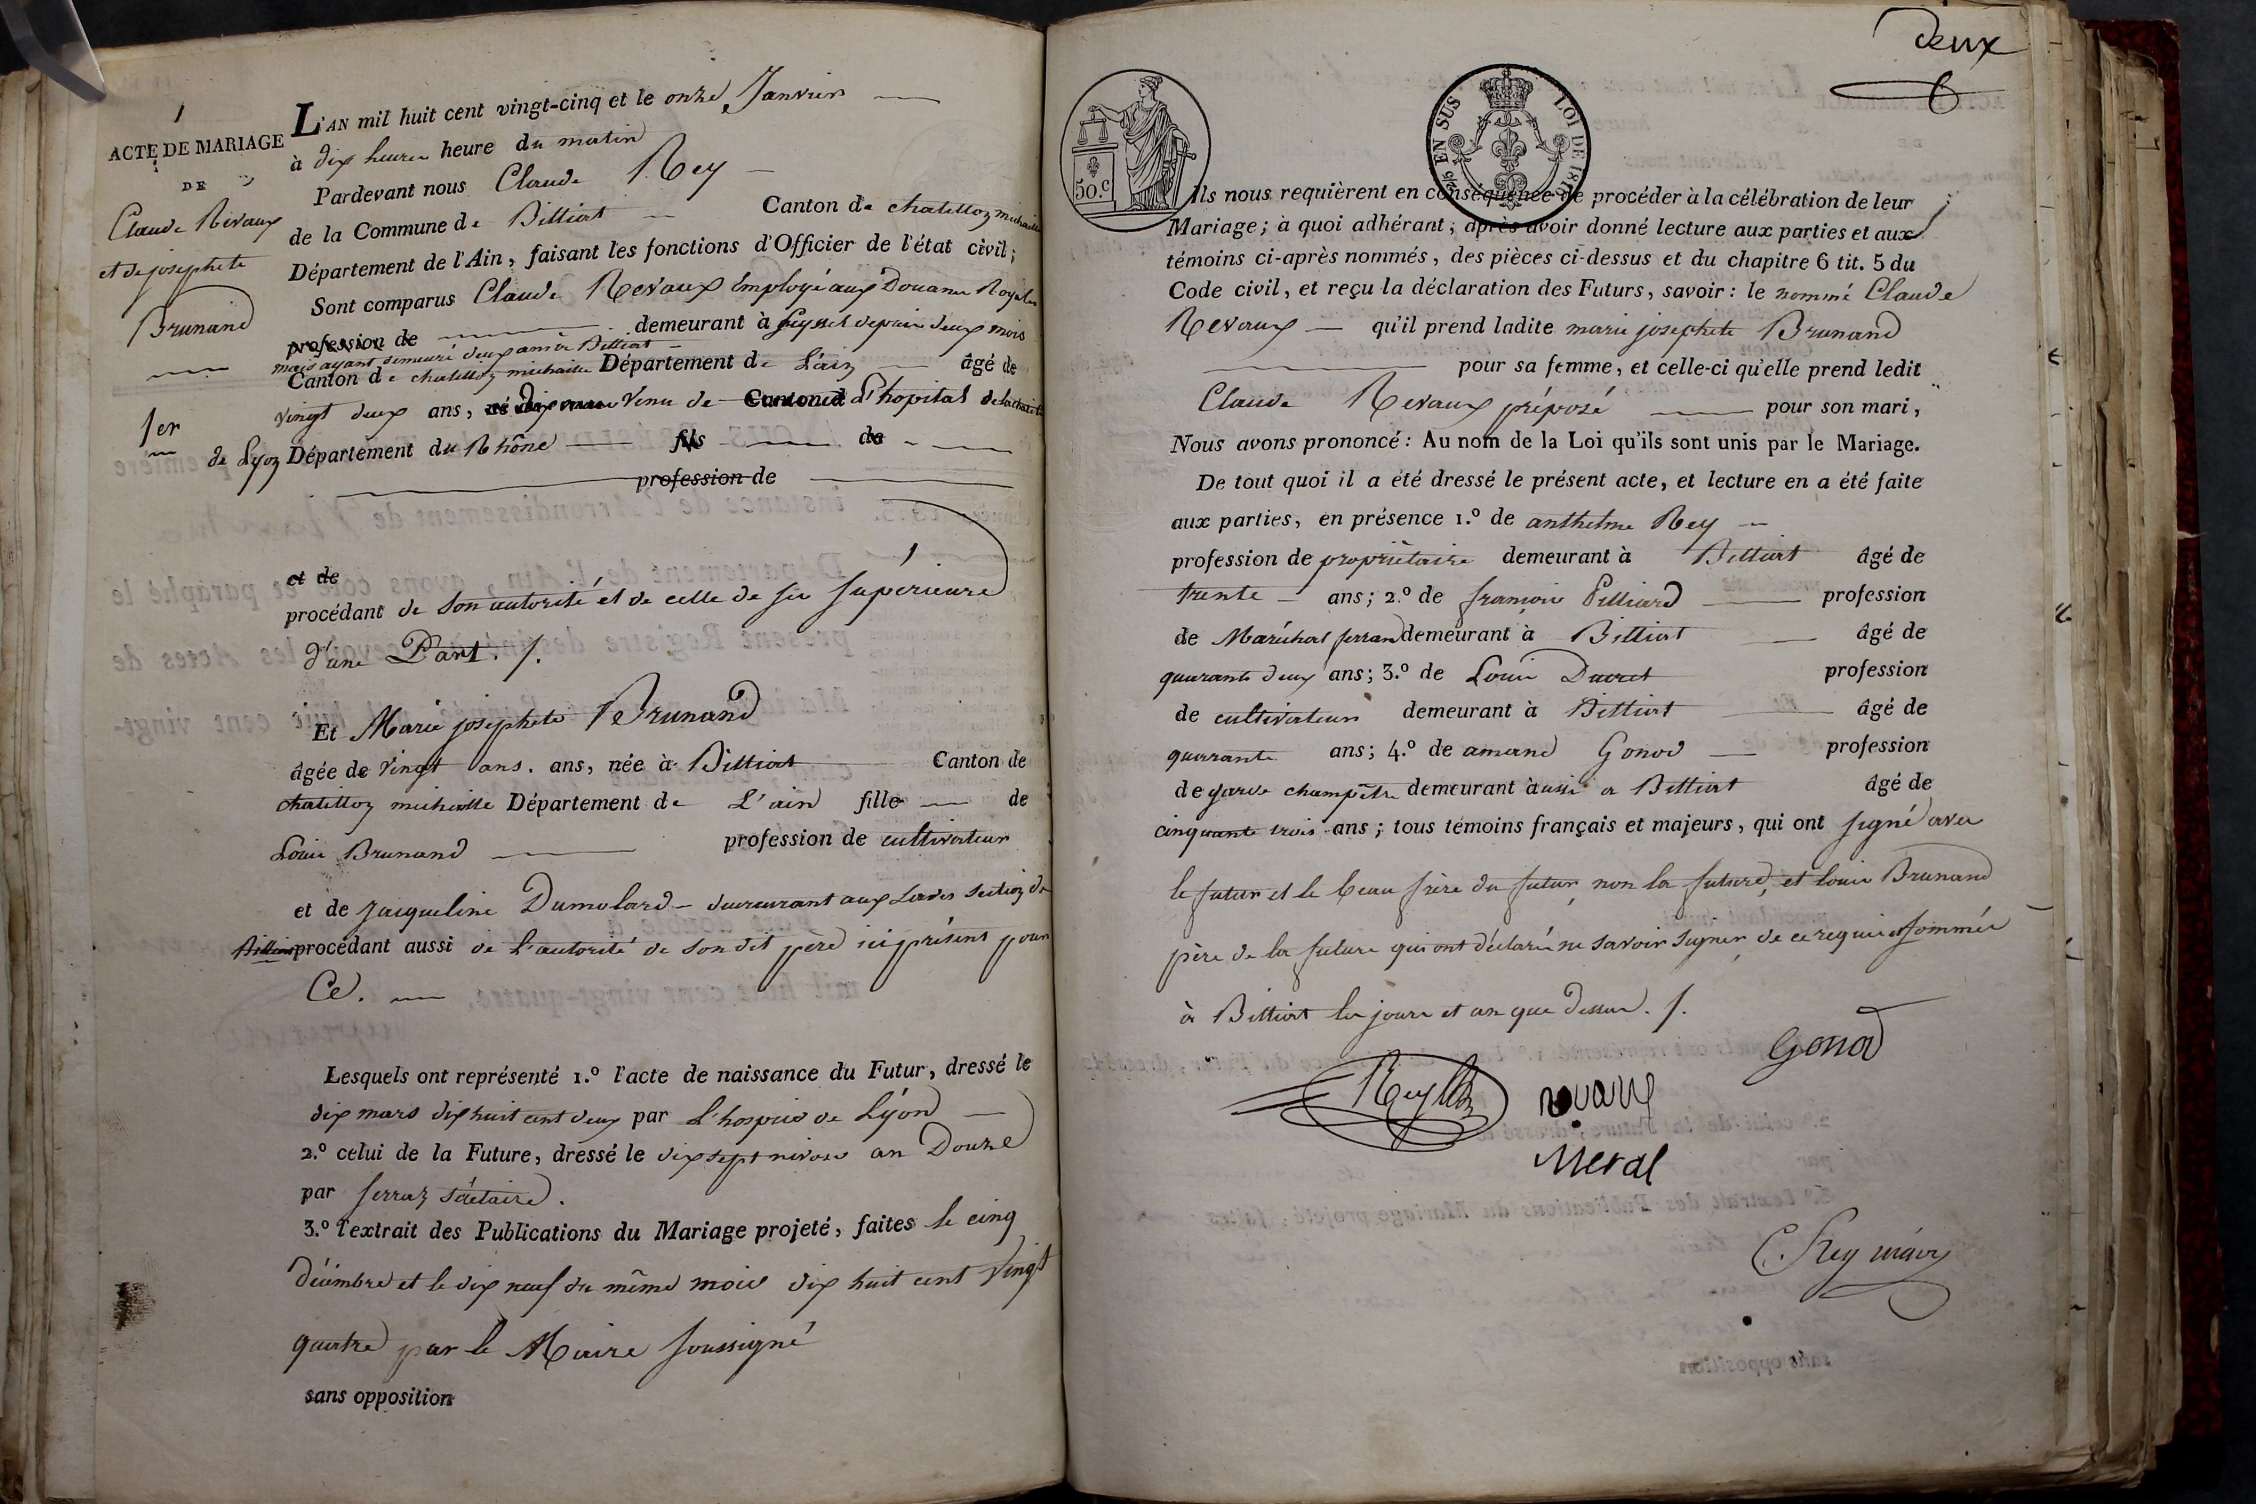 1
ACTE DE MARIAGE
DE
Claude Revaux
et de josephete
Brunand
1er
L'AN mil huit cent vingt-cinq et le onze Janvier
à dix heures heure du matin
Pardevant nous Claude Rey
de la Commune de Billiat Canton de chatillon michaille
Département de l'Ain, faisant les fonctions d'Officier de l'état civil;
Sont comparus Claude Revaux Employé aux Douanes Royales
profession de demeurant à Seyssel depuis deux mois
mais ayant demeuré deux ans à Billiat
Canton de chatillon michaille Département de L'ain âgé de
vingt deux ans, né Venu de Canton d L'hopital de la charité
de Lyon Département du Rhône fils de
profession de
et de
procédant de son autorité et de celle de ses supérieure
d'une Part. /.
Et Marie josephete Brunand
âgée de vingt ans. ans, née à Billiat Canton de
chatillon michaille Département de L'ain fille de
Louis Brunand profession de cultivateur
et de jacqueline Dumolard demeurant aux section de
Billiat procédant aussi de L'autorité de son dit père ici présent pour
Ce.
Lesquels ont représenté 1.º l'acte de naissance du Futur, dressé le
dix mars dix huit cent deux par L'hospice de Lyon
2.º celui de la Future, dressé le dix sept nivose an Douze
par ferraz
3.º l'extrait des Publications du Mariage projeté, faites le cinq
décembre et le dix neuf du même mois dix huit cent vingt
quatre par le Maire soussigné
sans opposition
deux
50.c
2/5 EN SUS
LOI DE 1816
Ils nous requièrent en conséquence de procéder à la célébration de leur
Mariage; à quoi adhérant; après avoir donné lecture aux parties et aux
témoins ci-après nommés, des pièces ci-dessus et du chapitre 6 tit. 5 du
Code civil, et reçu la déclaration des Futurs, savoir: le nommé Claude
Revaux qu'il prend ladite marie josephete Brunand
pour sa femme, et celle-ci qu'elle prend ledit
Claude Revaux préposé pour son mari,
Nous avons prononcé: Au nom de la Loi qu'ils sont unis par le Mariage.
De tout quoi il a été dressé le présent acte, et lecture en a été faite
aux parties, en présence 1.º de anthelme Rey
profession de propriétaire demeurant à Billiat âgé de
trente ans; 2.º de françois Billiard profession
de Maréchal ferrand demeurant à Billiat âgé de
quarante deux ans; 3.º de Louis Ducret profession
de cultivateur demeurant à Billiat âgé de
quarante ans; 4.º de amand Gonod profession
de garde champêtre demeurant à aussi a Billiat âgé de
cinquante trois ans; tous témoins français et majeurs, qui ont signé avec
le futur et le beau frère du futur, non la future, et louis Brunand
père de la future qui ont déclaré ne savoir signer, de ce requis et sommés
à Billiat les jours et an que dessus. /.
Gonod
Rey
Meral
C. Rey maire